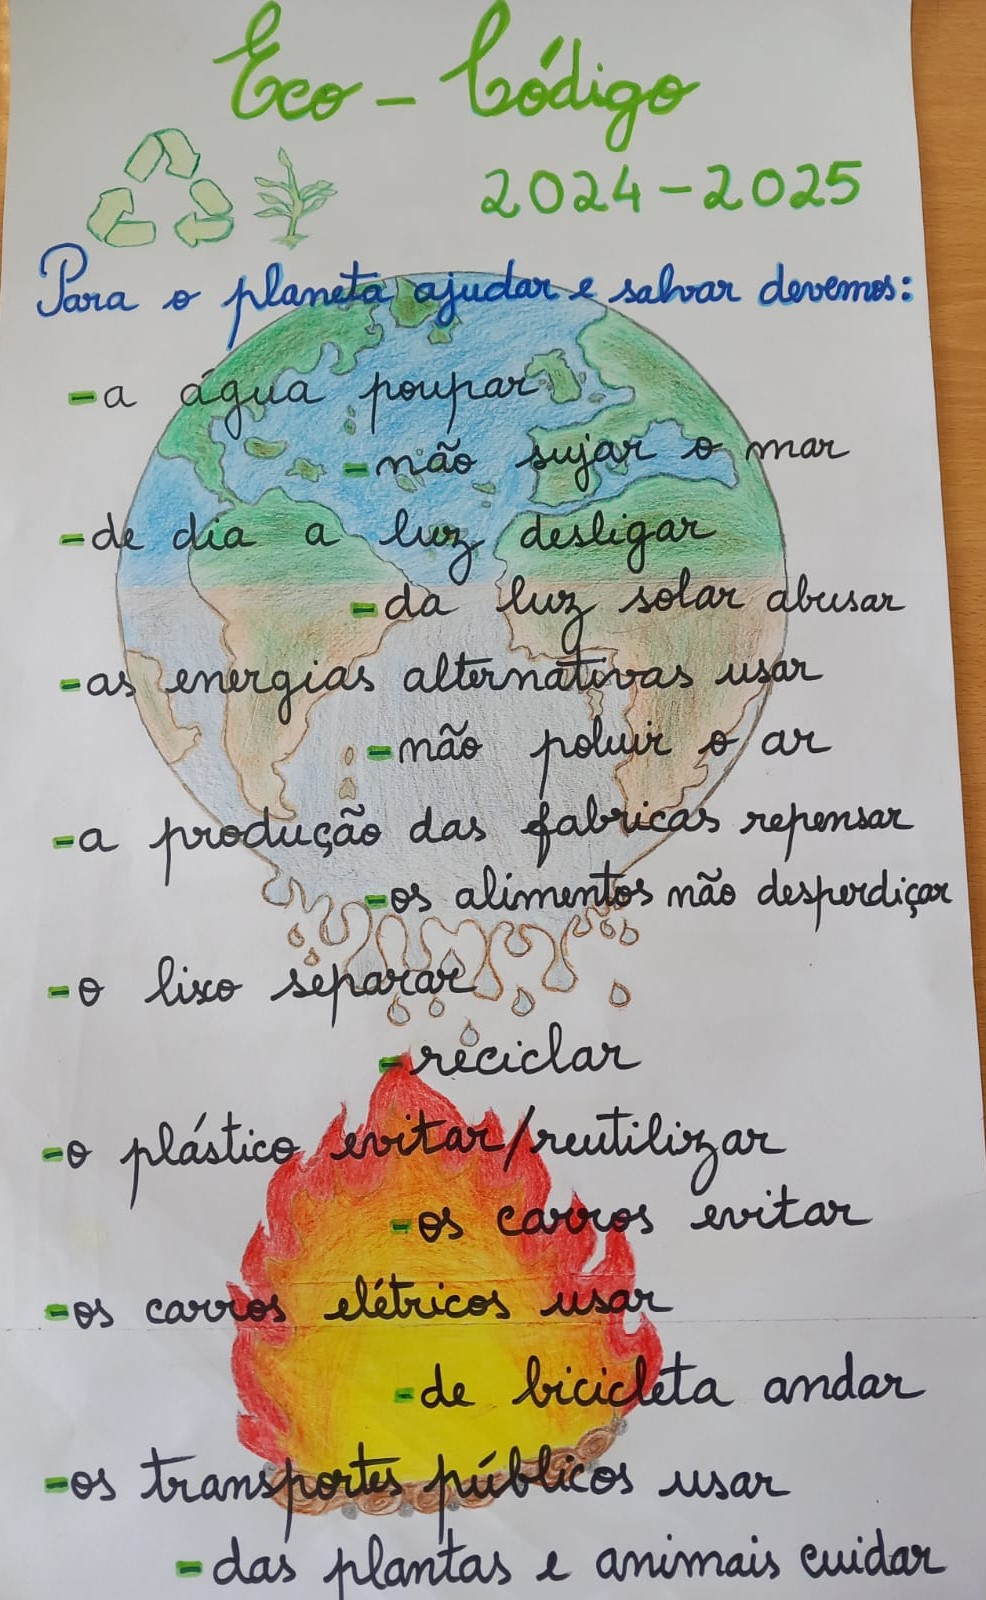 Eco - Código
2024-2025
Para o planeta ajudar e salvar devemos:
-a água poupar
-não sujar o mar
-de dia a luz desligar
-da luz solar abusar
-as energias alternativas usar
-não poluir o ar
-a produção das fabricas repensar
-os alimentos não desperdiçar
-o lixo separar
-reciclar
-o plástico evitar/reutilizar
-os carros evitar
-os carros elétricos usar
-de bicicleta andar
-os transportes públicos usar
-das plantas e animais cuidar